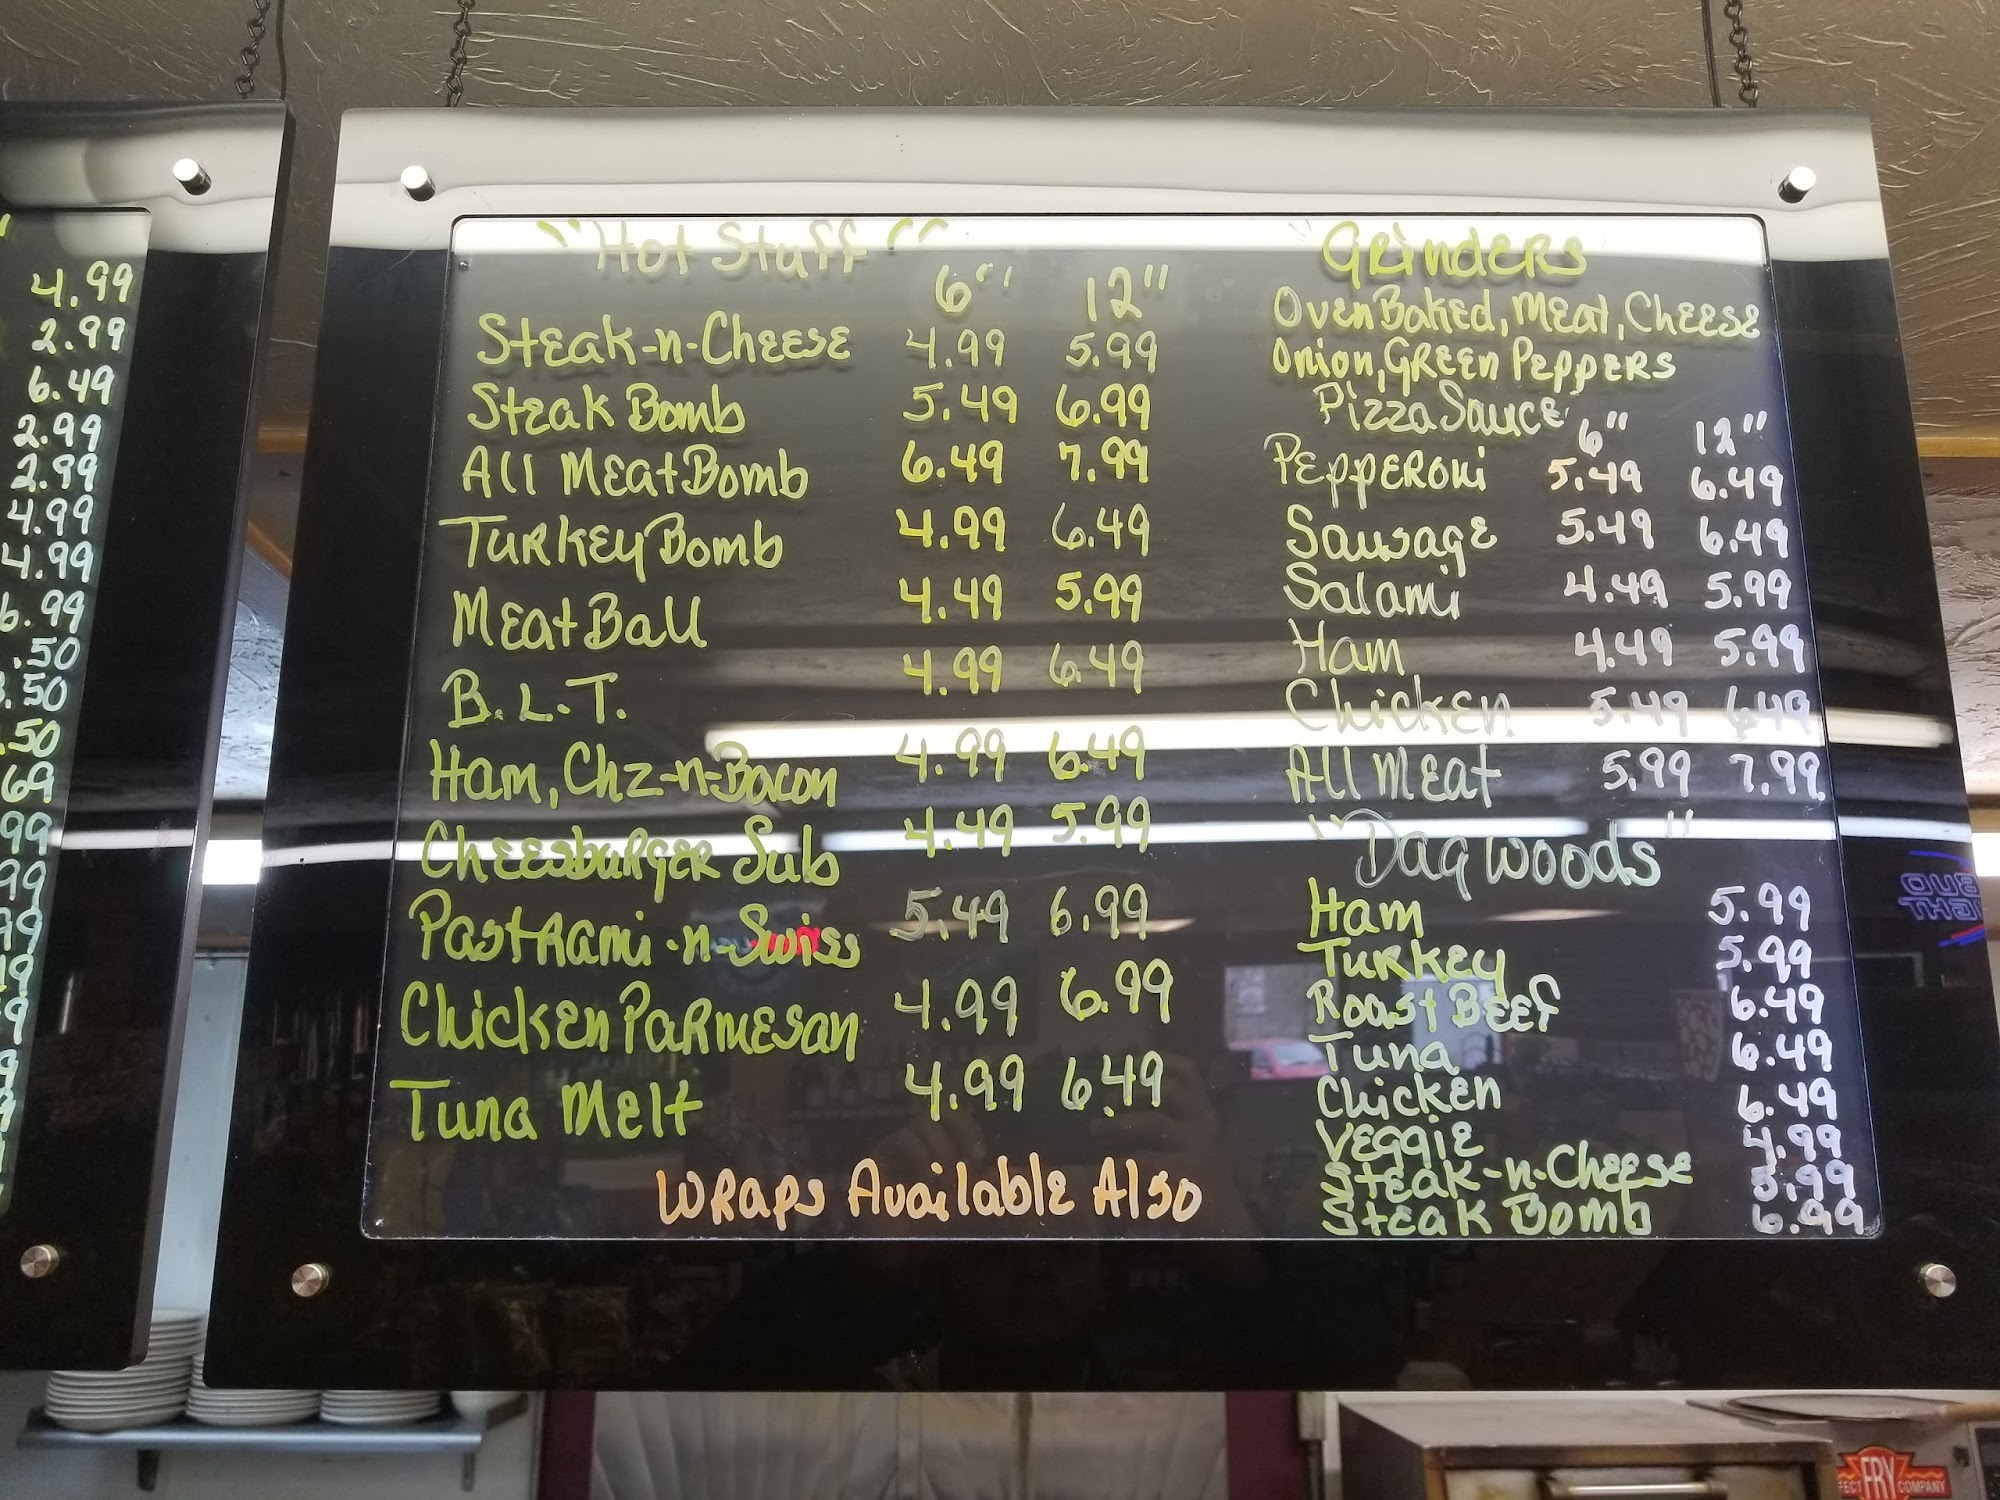 4.99
2.99
6.49
2.99
2.99
4.99
4.99
6.99
.50
.50
.50
69
99
99
99
19
"Hot Stuff"
6" 12"
Steak-n-Cheese 4.99 5.99
Steak Bomb 5.49 6.99
All Meat Bomb 6.49 7.99
Turkey Bomb 4.99 6.49
Meat Ball 4.49 5.99
B.L.T. 4.99 6.49
Ham, Chz-n-Bacon 4.99 6.49
Cheesburger Sub 4.49 5.99
Pastrami-n-Swiss 5.49 6.99
Chicken Parmesan 4.99 6.99
Tuna Melt 4.99 6.49
Wraps Available Also
"Grinders
Oven Baked, Meat, Cheese
Onion, Green Peppers
Pizza Sauce
6" 12"
Pepperoni 5.49 6.49
Sausage 5.49 6.49
Salami 4.49 5.99
Ham 4.49 5.99
Chicken 5.49 6.49
All Meat 5.99 7.99
"Dagwoods"
Ham 5.99
Turkey 5.99
Roast Beef 6.49
Tuna 6.49
Chicken 6.49
Veggie 4.99
Steak-n-Cheese 5.99
Steak Bomb 6.99
FRY
COMPANY